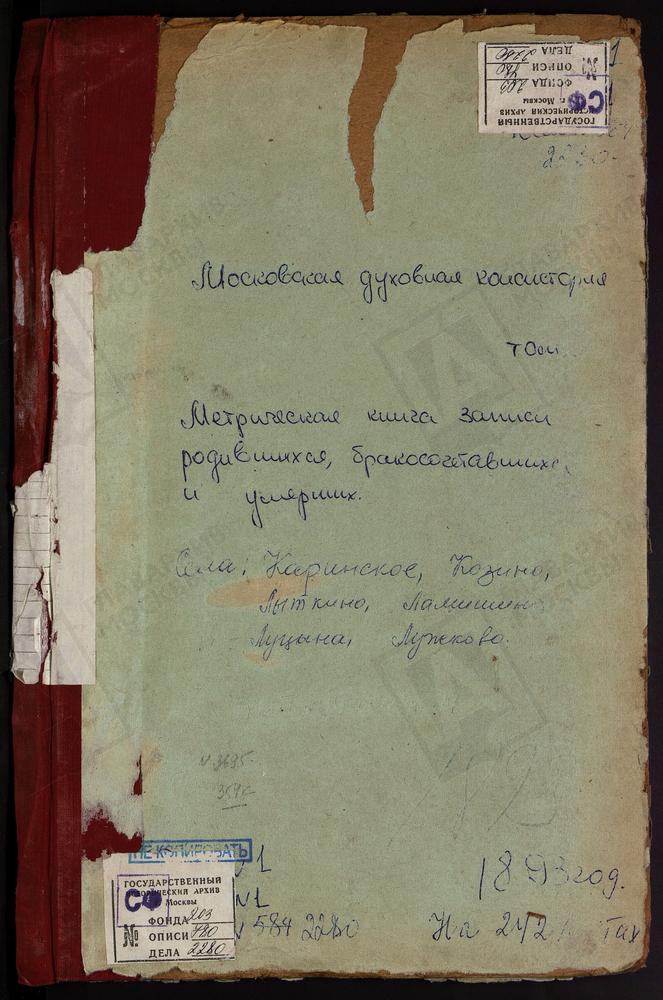 1
ГОСУДАРСТВЕННЫЙ
ИСТОРИЧЕСКИЙ АРХИВ
г. Москвы
СФ
№
ФОНДА 203
ОПИСИ 780
ДЕЛА 2280
2280
Московская духовная консистория
том
Метрическая книга записи
родившихся, бракосочетавшихся
и умерших.
Села: Каринское, Козино,
Лыткино, Ламишино
Луцына, Лужково.
НЕ КОПИРОВАТЬ
1
1893 год.
ГОСУДАРСТВЕННЫЙ
ИСТОРИЧЕСКИЙ АРХИВ
г. Москвы
СФ
№
ФОНДА 203
ОПИСИ 780
ДЕЛА 2280
№1
584 2280
На 242